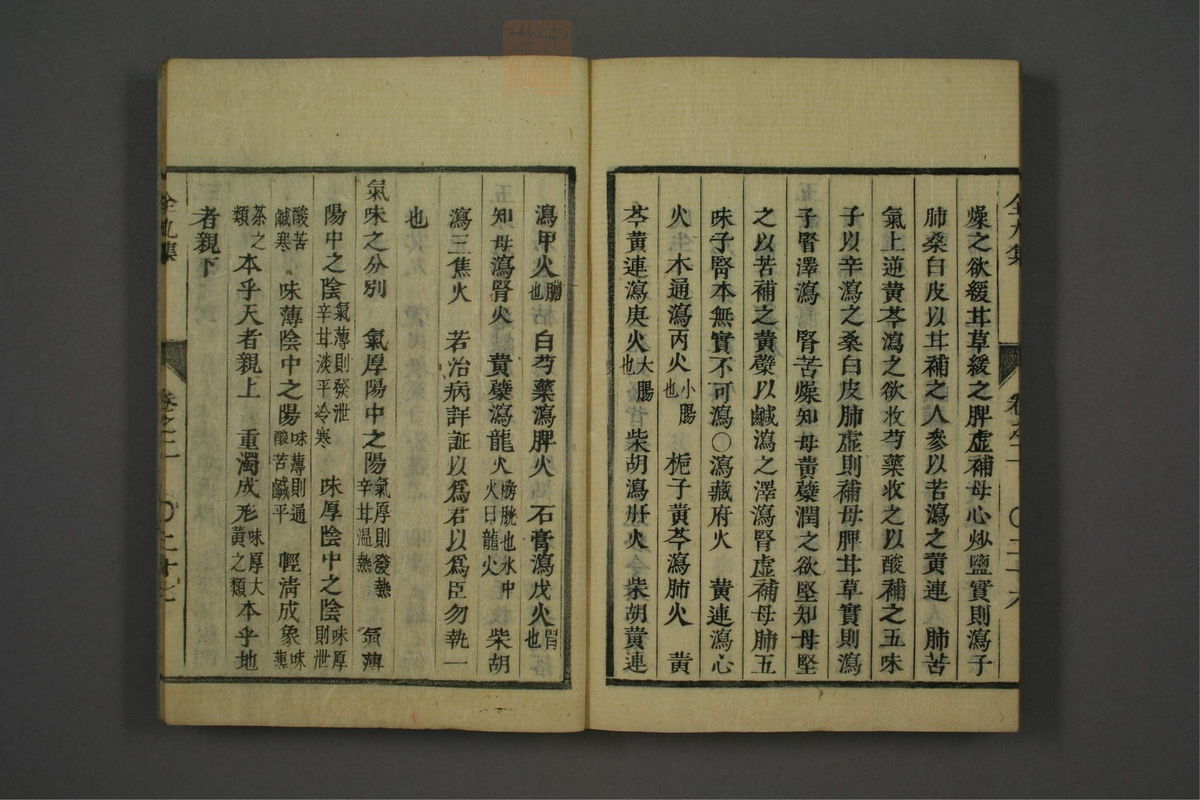 燥之欲緩甘草緩之脾虛補母心炒鹽實則瀉子
肺桑白皮以甘補之人參以苦瀉之黃連　肺苦
氣上逆黃芩瀉之欲收芍藥收之以酸補之五味
子以辛瀉之桑白皮肺虛則補母脾甘草實則瀉
子腎澤瀉　腎苦燥知母黃蘗潤之欲堅知母堅
之以苦補之黃蘗以鹹瀉之澤瀉腎虛補母肺五
味子腎本無實不可瀉〇瀉藏府火　黃連瀉心
火　木通瀉丙火小腸也　梔子黃芩瀉肺火　黃
芩黃連瀉庚火大腸也　柴胡瀉肝火　柴胡黃連
瀉甲火膽也　白芍藥瀉脾火　石膏瀉戊火胃也
知母瀉腎火　黃蘗瀉龍火膀胱也水中火曰龍火　柴胡
瀉三焦火　若治病詳証以爲君以爲臣勿執一
也
氣味之分別　氣厚陽中之陽氣厚則發熱辛甘温熱　氣薄
陽中之陰氣薄則發泄辛甘淡平冷寒　味厚陰中之陰味厚則泄
酸苦鹹寒　味薄陰中之陽味薄則通酸苦鹹平　輕淸成象味薄
茶之類本乎天者親上　重濁成形味厚大黃之類本乎地
者親下
全九集
卷之二
〇二十六
全九集
卷之二
〇二十七